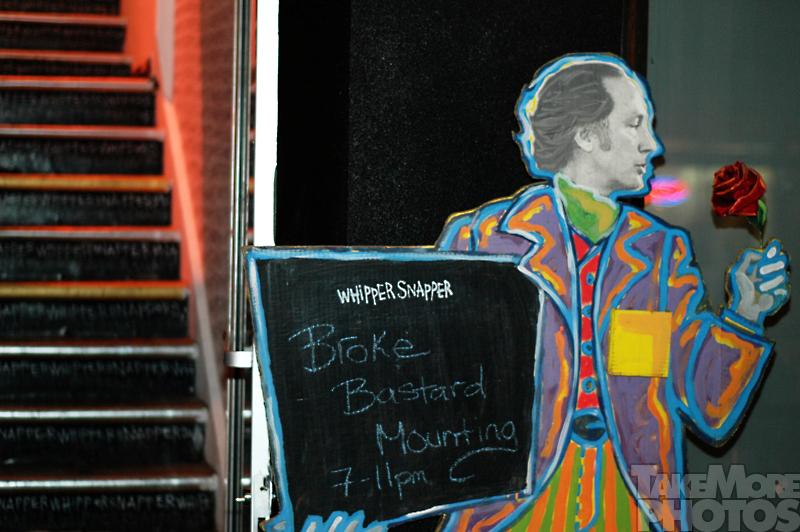 WHIPPERSNAPPER
Broke
Bastard
Mounting
7-11pm
SNAPPERWHIPPERSNAPPERWHIPPERSNAPPER
SNAPPERWHIPPERSNAPPER
TAKEMORE
PHOTOS